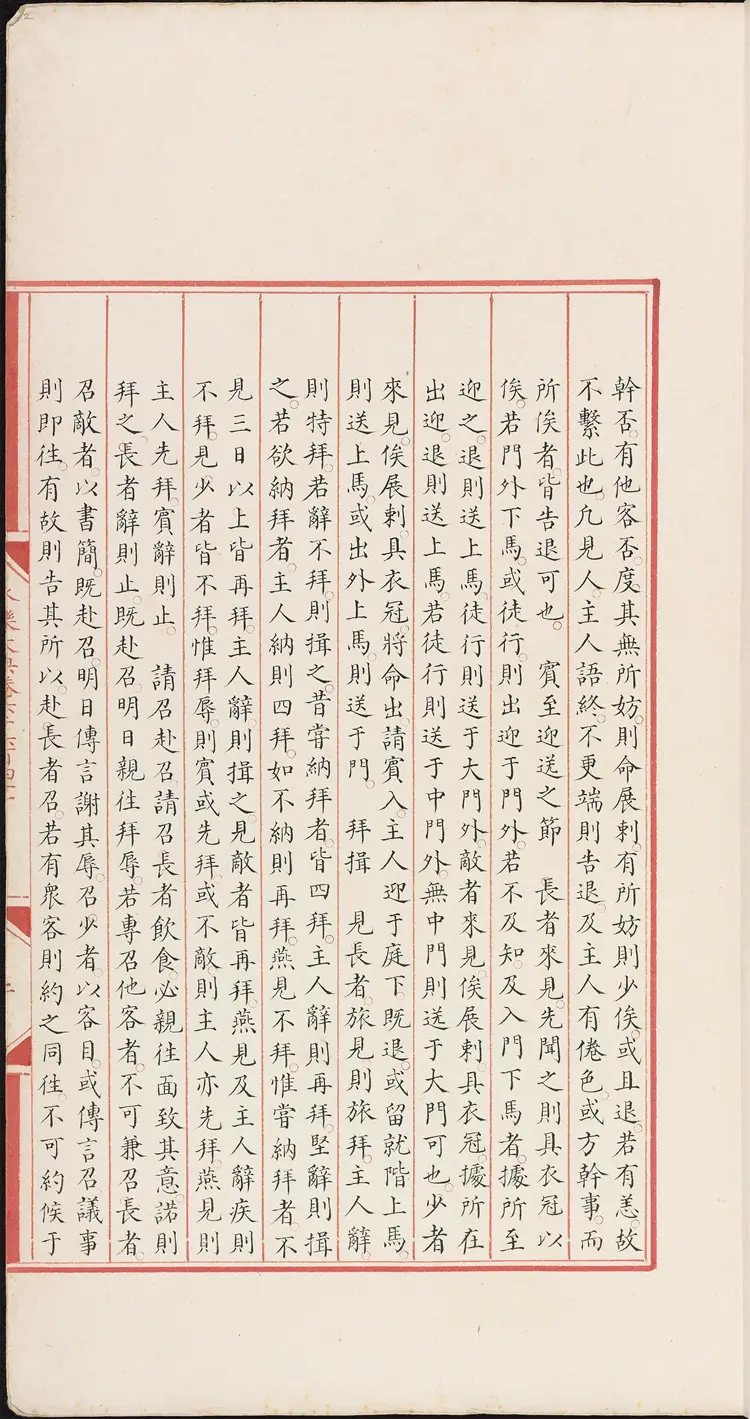 幹否。有他客否。度其無所妨。則命展剌。有所妨則少俟。或且退。若有恙。故
不繫此也。凢見人。主人語終。不更端則告退。及主人有倦色。或方幹事。而
所俟者。皆告退可也。　賓至迎送之節　長者來見。先聞之則具衣冠以
俟。若門外下馬。或徒行。則出迎于門外。若不及知。及入門下馬者。據所至
迎之。退則送上馬。徒行則送于大門外。敵者來見。俟展剌。具衣冠。據所在
出迎。退則送上馬。若徒行則送于中門外。無中門則送于大門可也。少者
來見。俟展剌。具衣冠。將命出。請賓入。主人迎于庭下。既退。或留就階上馬。
則送上馬。或出外上馬。則送于門。　拜揖　見長者。旅見則旅拜。主人辭。
則特拜。若辭不拜。則揖之。昔甞納拜者。皆四拜。主人辭則再拜。堅辭則揖
之。若欲納拜者。主人納則四拜。如不納則再拜。燕見不拜。惟甞納拜者。不
見三日以上皆再拜。主人辭。則揖之。見敵者皆再拜。燕見及主人辭疾則
不拜。見少者皆不拜。惟拜辱。則賓或先拜。或不敵則主人亦先拜。燕見則
主人先拜。賓辭則止。　請召赴召請召長者飲食。必親徃面致其意。諾則
拜之。長者辭則止。既赴召明日親徃拜辱。若專召他客者。不可兼召長者。
召敵者。以書簡。既赴召。明日傳言謝其辱。召少者。以客目。或傳言召議事
則即徃。有故則告其所以。赴長者召。若有衆客則約之同徃。不可約候于